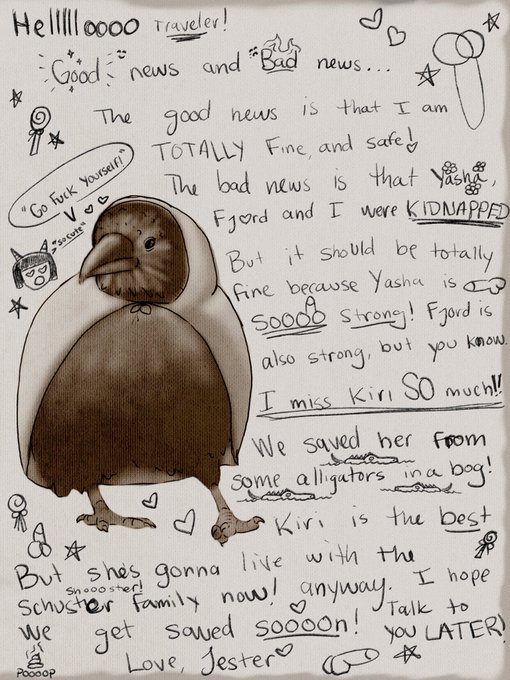 Helllllloooo Traveler!
Good news and Bad news...
The good news is that I am
TOTALLY Fine, and safe!
The bad news is that Yasha,
"Go Fuck Yourself!"
Fjord and I were KIDNAPPED
*so cute*
But it should be totally
fine because Yasha is
SOOOO strong! Fjord is
also strong, but you know.
I miss Kiri SO much!!
We saved her from
some alligators in a bog!
Kiri is the best
But she's gonna live with the
Snoooster!
Schuster family now! anyway. I hope
we get saved soooon! Talk to
you LATER!
Love, Jester
POOOOP